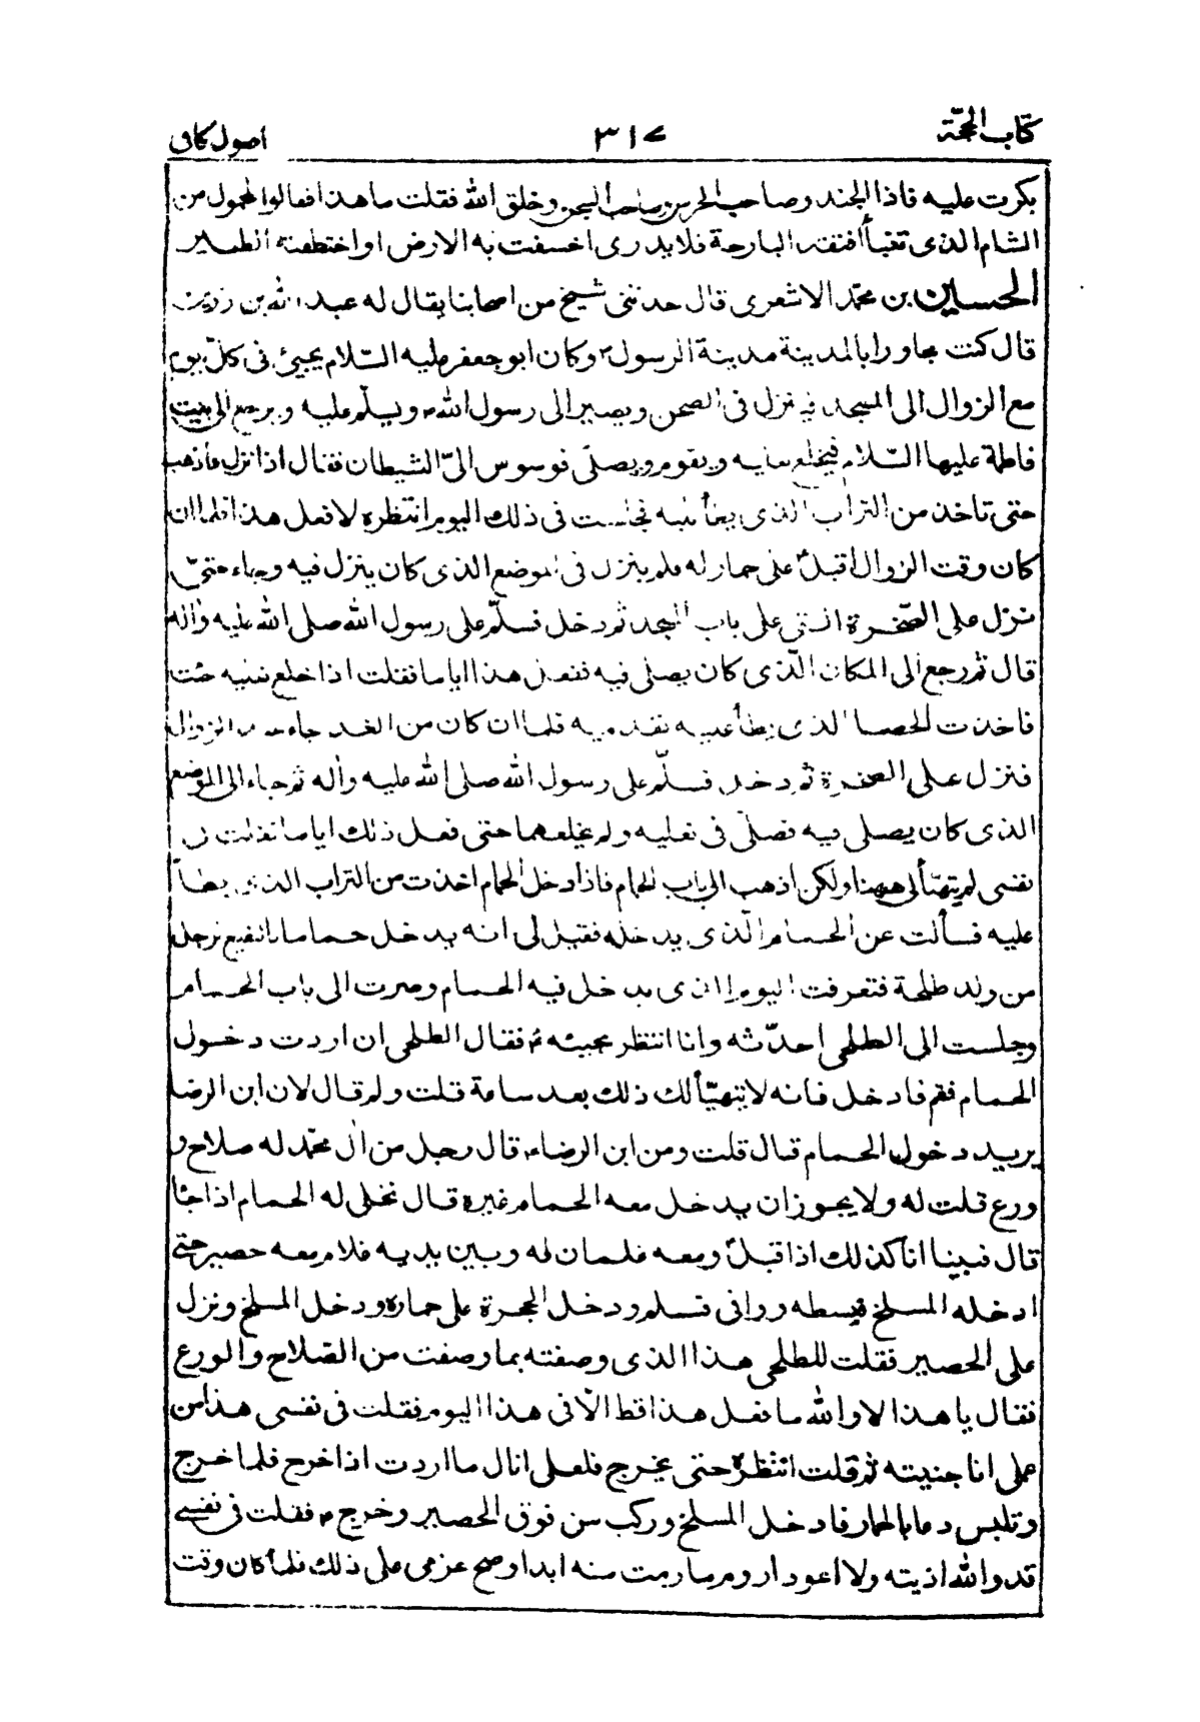 كتاب الحجّة ٣١٧ اصول كافى
بكرت عليه فاذا الجند وصاحب الحرس وصاحب السجن وخلق الله فقلت ما هذا فقالوا المحمول من
الشام الذى تنبأ افتقد البارحة فلا يدرى اخسفت به الارض او اختطفته الطير
الحسين بن محمّد الاشعرى قال حدثنى شيخ من اصحابنا يقال له عبد الله بن رزين
قال كنت مجاورا بالمدينة مدينة الرسول ص وكان ابو جعفر عليه السّلام يجيئ فى كلّ يوم
مع الزوال الى المسجد فينزل فى الصحن ويصير الى رسول الله ص ويسلّم عليه ويرجع الى بيت
فاطمة عليها السّلام فيخلع نعليه ويقوم ويصلّى فوسوس الىّ الشيطان فقال اذا نزل فاذهب
حتى تاخذ من التراب الذى يطأ عليه فجلست فى ذلك اليوم انتظره لافعل هذا فلما ان
كان وقت الزوال أقبل ع على حمار له فلم ينزل فى الموضع الذى كان ينزل فيه وجاء حتىّ
نزل على الصّخرة التى على باب المسجد ثم دخل فسلّم على رسول الله صلى الله عليه وآله
قال ثم رجع الى المكان الّذى كان يصلى فيه ففعل هذا اياما فقلت اذا خلع نعليه جئت
فاخذت الحصا الذى يطأ عليه بقدميه فلما ان كان من الغد جاء عند الزوال
فنزل على الصخرة ثم دخل فسلّم على رسول الله صلى الله عليه وآله ثم جاء الى الموضع
الذى كان يصلى فيه فصلّى فى نعليه ولم يخلعهما حتى فعل ذلك اياما فقلت فى
نفسى لم يتهيّأ لى ههنا ولكن اذهب الى باب الحمام فاذا دخل الحمام اخذت من التراب الذى يطأ
عليه فسألت عن الحمام الّذى يدخله فقيل لى انه يدخل حماما بالبقيع لرجل
من ولد طلحة فتعرفت اليوم الذى يدخل فيه الحمام وصرت الى باب الحمام
وجلست الى الطلحى احدّثه وانا انتظر مجيئه ع فقال الطلحى ان اردت دخول
الحمام فقم فادخل فانه لا يتهيّأ لك ذلك بعد ساعة قلت ولم قال لان ابن الرضا
يريد دخول الحمام قال قلت ومن ابن الرضا ع قال رجل من آل محمّد له صلاح و
ورع قلت له ولا يجوز ان يدخل معه الحمام غيره قال نخلى له الحمام اذا جاء
قال فبينا انا كذلك اذ اقبل ع ومعه غلمان له وبين يديه غلام معه حصير حتى
ادخله المسلخ فبسطه ووافى فسلم ودخل الحجرة على حماره ودخل المسلخ ونزل
على الحصير فقلت للطلحى هذا الذى وصفته بما وصفت من الصّلاح والورع
فقال يا هذا لا والله ما فعل هذا قط الّا فى هذا اليوم فقلت فى نفسى هذا من
عملى انا جنيته ثم قلت انتظره حتى يخرج فلعلى انال ما اردت اذا خرج فلما خرج
وتلبس دعا بالحمار فادخل المسلخ وركب من فوق الحصير وخرج ع فقلت فى نفسى
قد والله اذيته ولا اعود اروم ما رمت منه ابدا وصح عزمى على ذلك فلما كان وقت